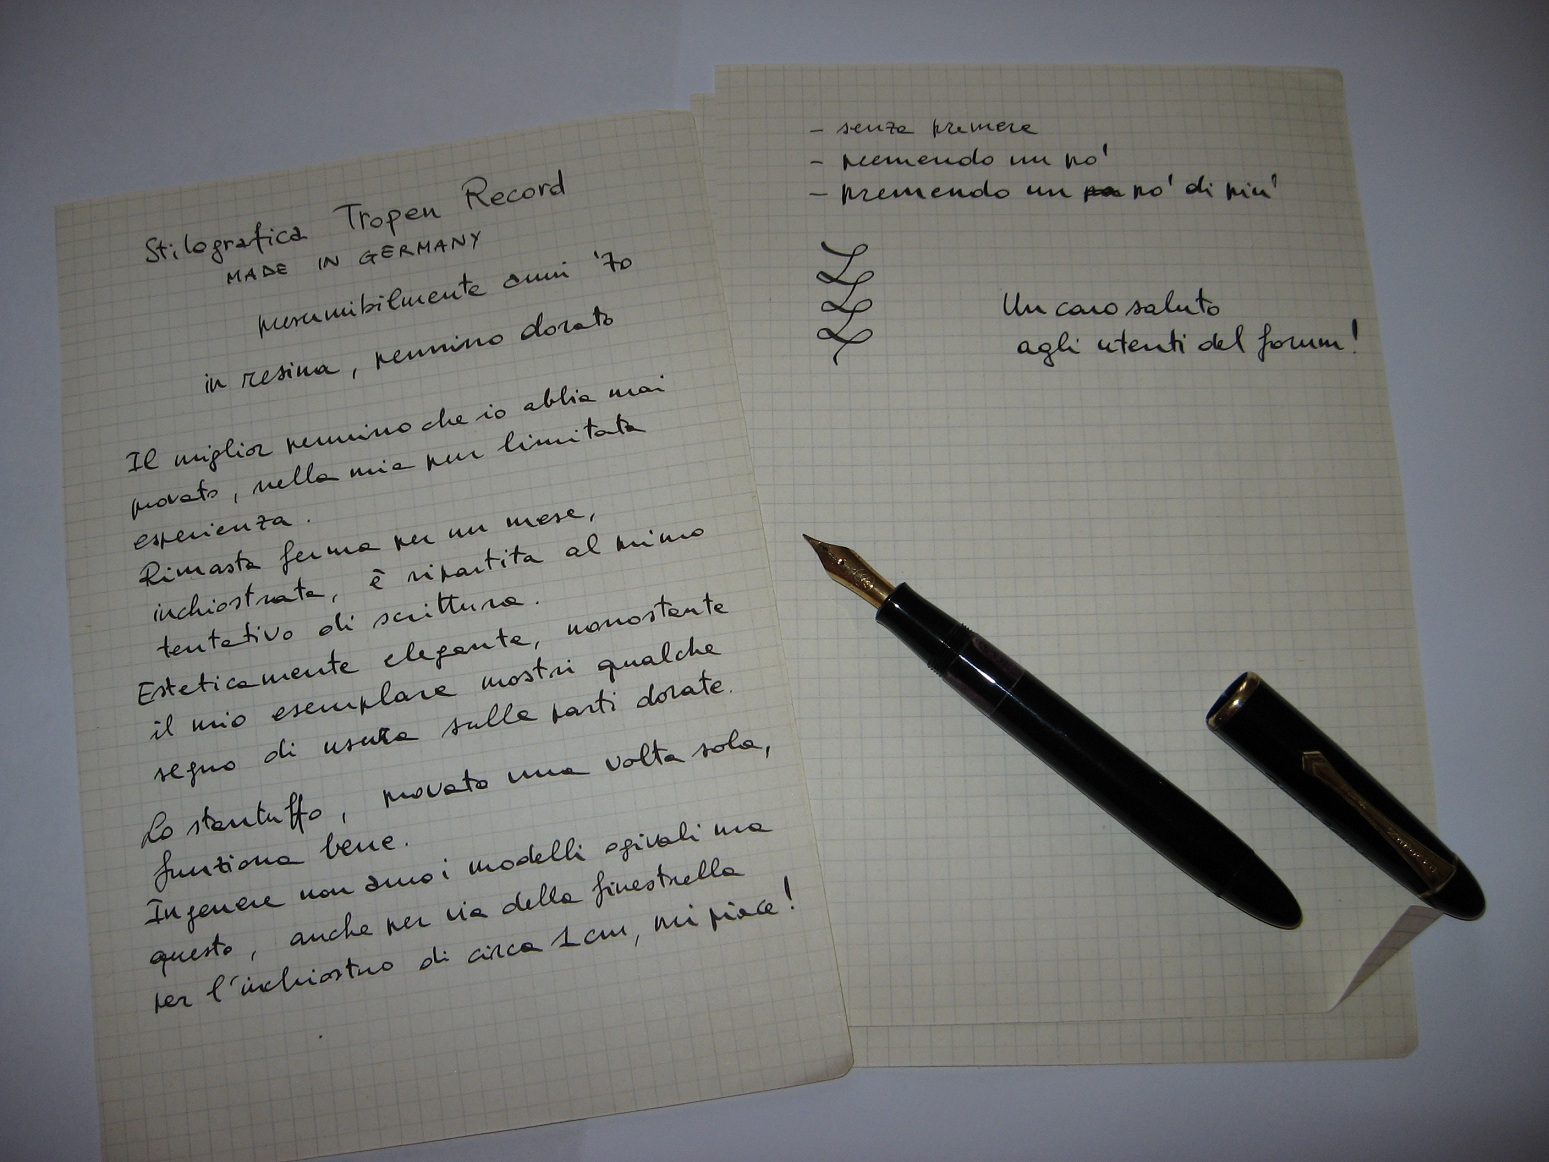 Stilografica Tropen Record
MADE IN GERMANY
presumibilmente anni '70
in resina, pennino dorato
Il miglior pennino che io abbia mai
provato, nella mia pur limitata
esperienza.
Rimasta ferma per un mese,
inchiostrata, è ripartita al primo
tentativo di scrittura.
Esteticamente elegante, nonostante
il mio esemplare mostri qualche
segno di usura sulle parti dorate.
Lo stantuffo, provato una volta sola,
funziona bene.
In genere non amo i modelli ogivali ma
questo, anche per via della finestrella
per l'inchiostro di circa 1 cm, mi piace!
- senza premere
- premendo un po'
- premendo un po' di piu'
Un caro saluto
agli utenti del forum!